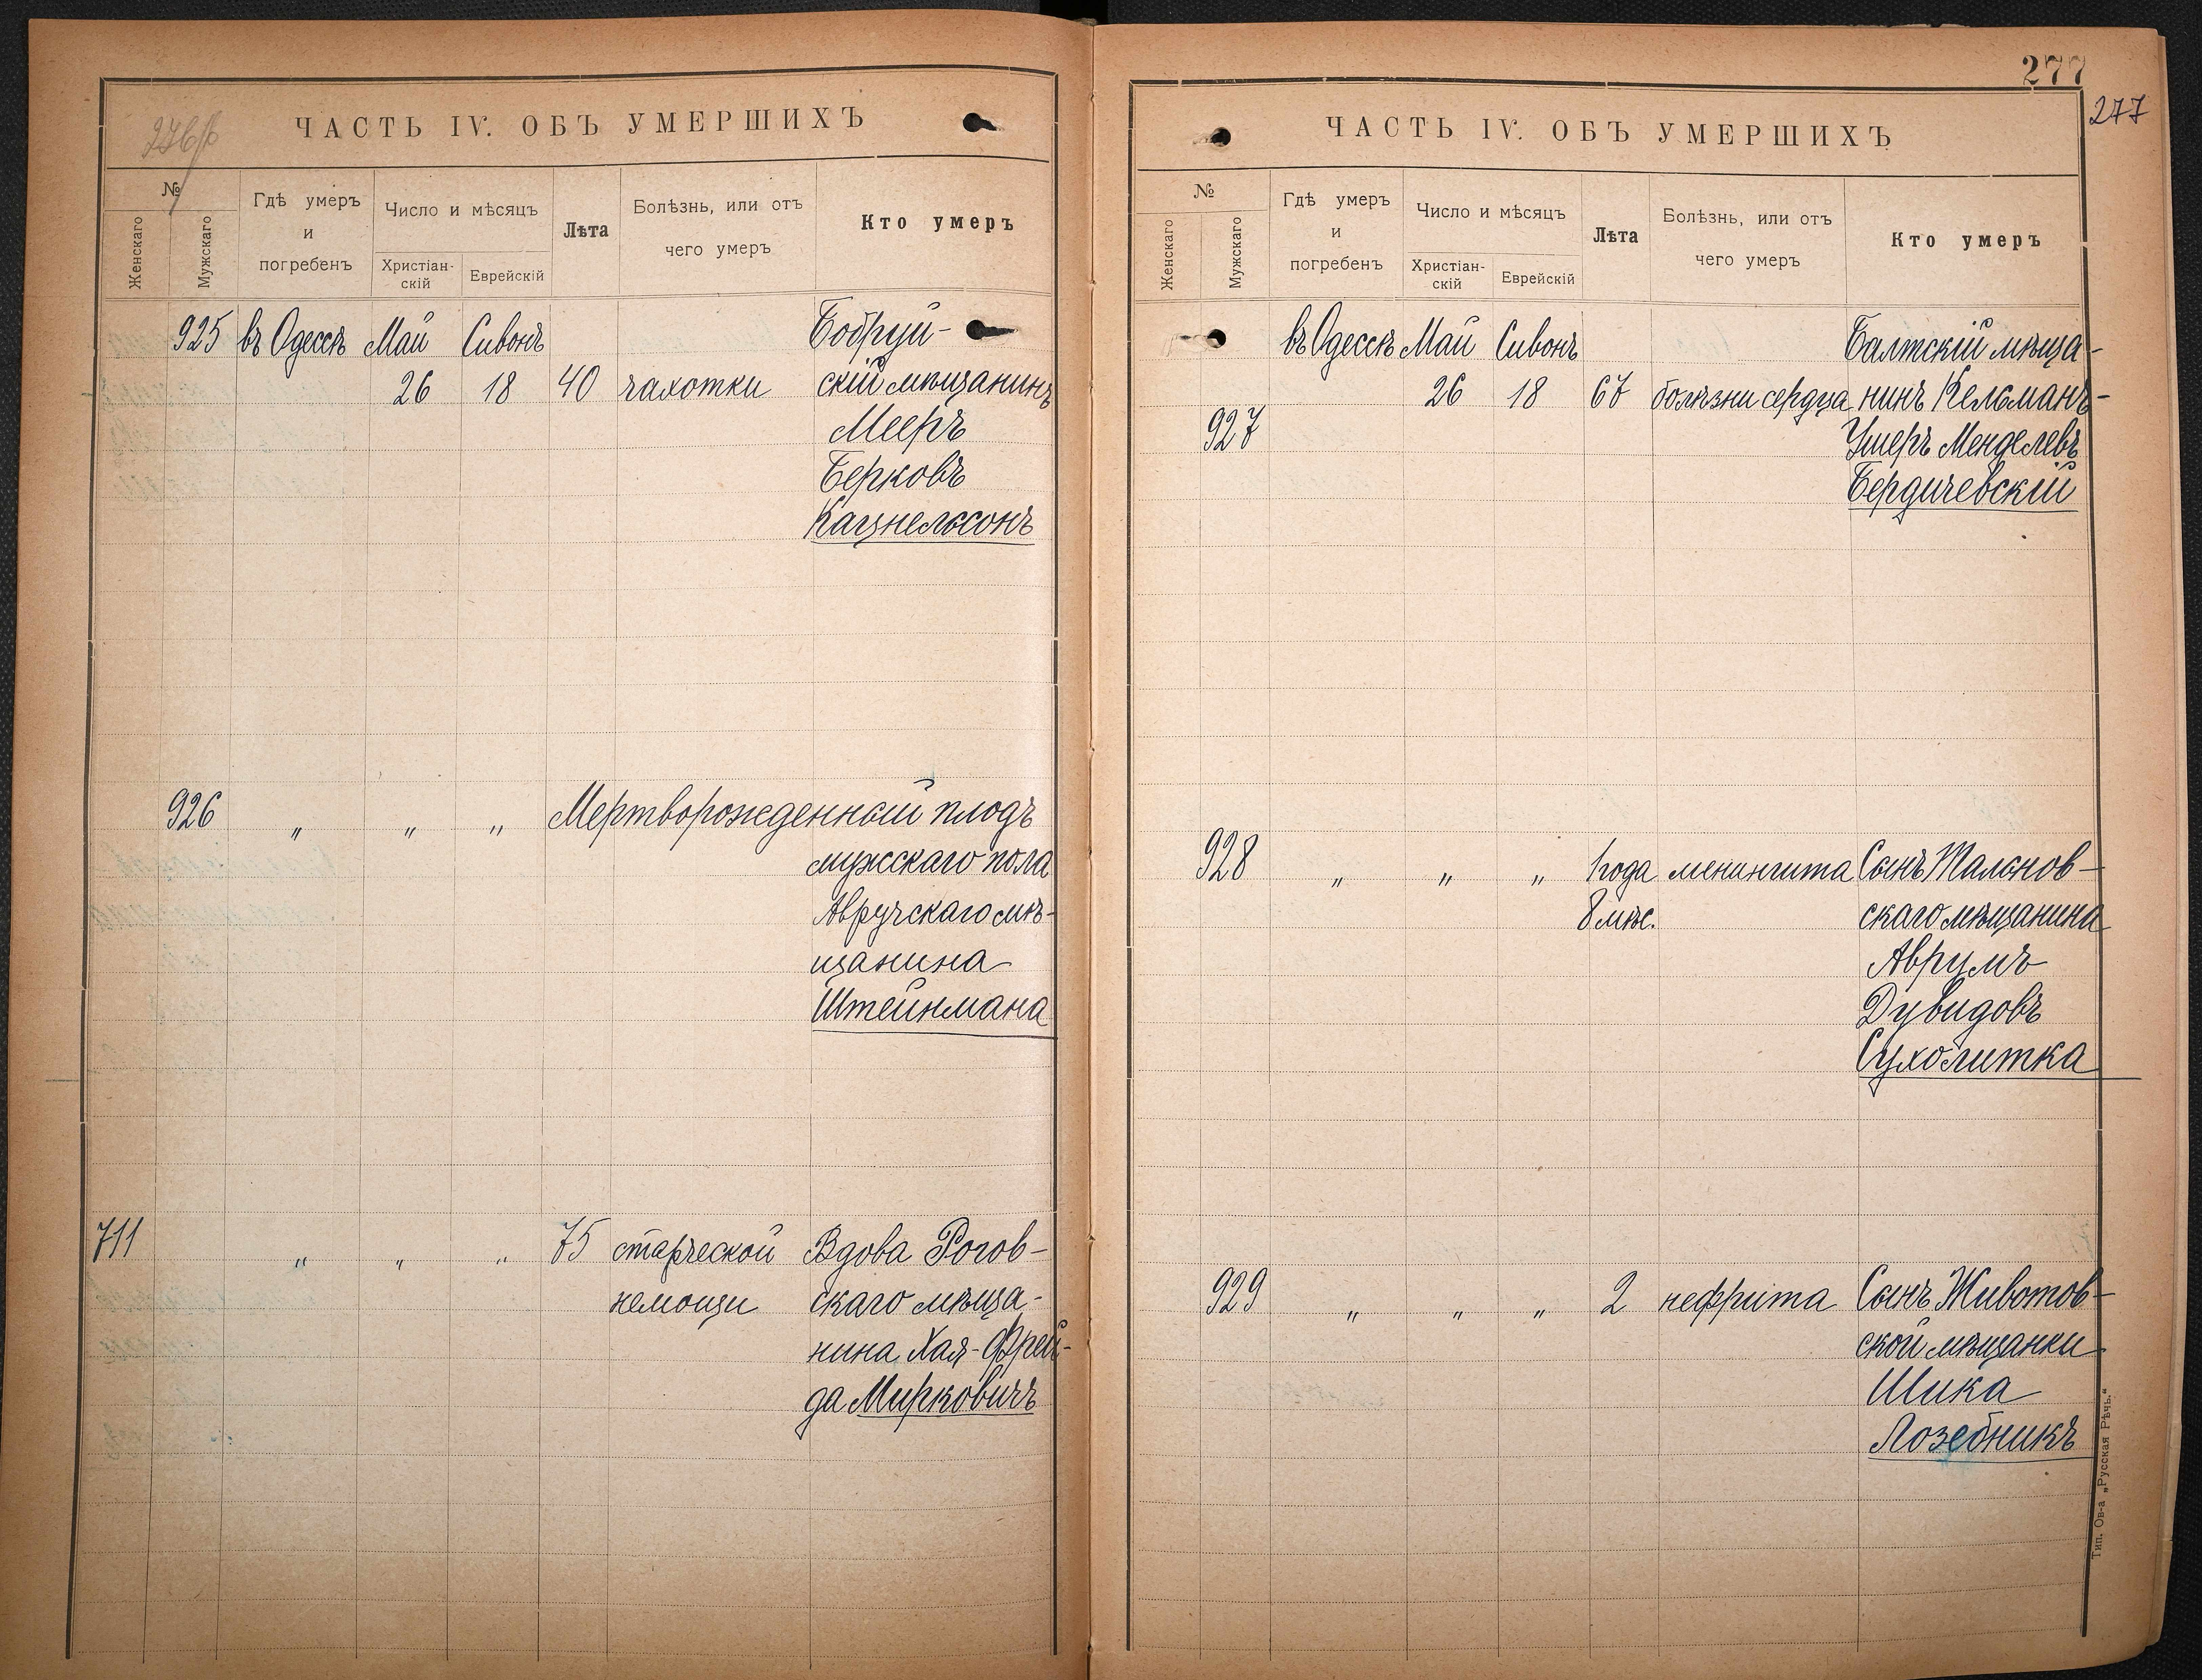 276/б
ЧАСТЬ IV. ОБЪ УМЕРШИХЪ
№
Женскаго
Мужскаго
Гдѣ умеръ
и
погребенъ
Число и мѣсяцъ
Христіан-
скій
Еврейскій
Лѣта
Болѣзнь, или отъ
чего умеръ
Кто умеръ
925 въ Одессѣ Май Сивонъ Бобруй-
26 18 40 чахотки скій мѣщанинъ
Мееръ
Берковъ
Кацнельсонъ
926 „ „ „ Мертворожденный плодъ
мужскаго пола
Авручскаго мѣ-
щанина
Штейнмана
711 „ „ „ 75 старческой Вдова Рогов-
немощи скаго мѣща-
нина Хая-Фрей-
да Мирковичъ
277
277
ЧАСТЬ IV. ОБЪ УМЕРШИХЪ
№
Женскаго
Мужскаго
Гдѣ умеръ
и
погребенъ
Число и мѣсяцъ
Христіан-
скій
Еврейскій
Лѣта
Болѣзнь, или отъ
чего умеръ
Кто умеръ
въ Одессѣ Май Сивонъ Балтскій мѣща-
26 18 67 болѣзни сердца нинъ Кельманъ-
927 Ушеръ Менделевъ
Бердичевскій
928 „ „ „ 1 года менингита Сынъ Тальнов-
8 мѣс. скаго мѣщанина
Аврумъ
Дувидовъ
Сухолитка
929 „ „ „ 2 нефрита Сынъ Животов-
ской мѣщанки
Шика
Лозебникъ
Тип. Ов-а „Русская Рѣчь.“